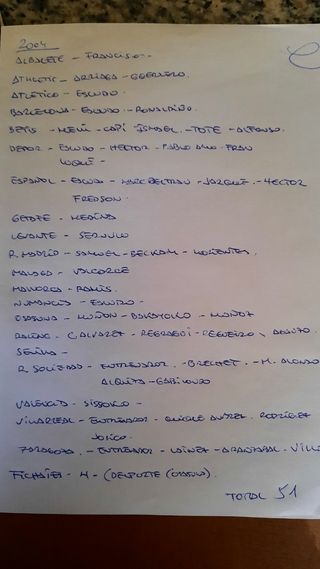 2004
ALBACETE - FRANCISCO -
ATHLETIC - ARRIAGA - GUERRERO.
ATLETICO - ESCUDO.
BARCELONA - ESCUDO - RONALDIÑO
BETIS - MEMI - CAPI ISMAEL - TOTE - ALFONSO.
DEPOR - ESCUDO - HECTOR - PABLO AMO - FRAN
LUQUE -
ESPAÑOL - ESCUDO - MARC BELTRAN - JARQUE - HECTOR
FREDSON
GETAFE - MEDINA
LEVANTE - SERNULO
R. MADRID - SAMUEL - BECKAM - MORIENTES,
MALAGA - VALCARCE
MALLORCA - RAMIS.
NUMANCIA - ESCUDO -
OSASUNA - MUÑOZ - BAKAYOKO - MUÑOZ
RACING. C. ALVAREZ - REGRAGUI - REGUEIRO
SEVILLA -
R. SOCIEDAD - ENTRENADOR - BRECHET - M. ALONSO
ALKIZA - GABILONDO
VALENCIA - SISSOKO -
VILLARREAL - ENTRENADOR - QUIQUE ALVAREZ. RODRIGUEZ
JOSICO.
ZARAGOZA. - ENTRENADOR - LAINEZ - ARANZABAL - VILLA
FICHAJES - 4 - (DELPORTE
TOTAL 51